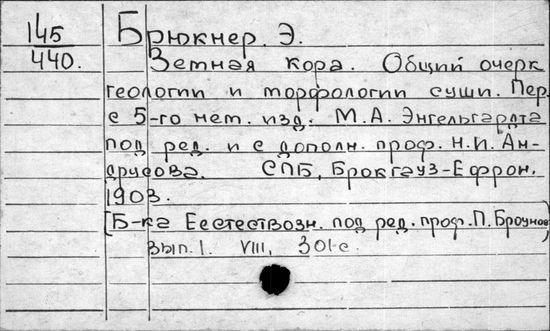 145 Брюкнер. Э.
440. Земная кора. Общий очерк
геологии и морфологии суши. Пер.
с 5-го нем. изд. М.А. Энгельгардта
под ред. и с дополн. проф. Н.И. Ан-
друсова. СПБ, Брокгауз-Ефрон,
1903.
[Б-ка Еестествозн. под ред. проф. П. Броунов
вып. 1. VIII, 301 с.